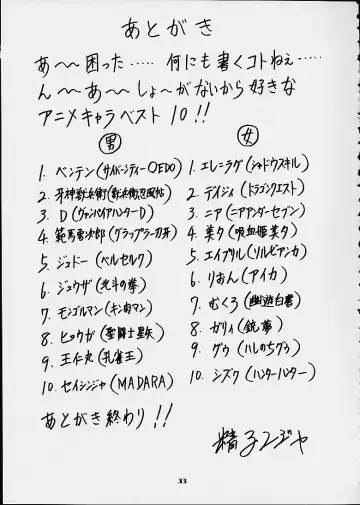 あとがき
あ〜〜困った…… 何にも書くコトねぇ……
ん〜〜あ〜〜しょ〜がないから好きな
アニメキャラベスト10!!
男
1. ベンテン(サイバーシティーOEDO)
2. 牙神獣兵衛(獣兵衛忍風帖)
3. D(ヴァンパイアハンターD)
4. 範馬勇次郎(グラップラー刃牙)
5. ジュドー(ベルセルク)
6. ジュウザ(北斗の拳)
7. モンゴルマン(キン肉マン)
8. ヒョウガ(聖闘士星矢)
9. 王仁丸(孔雀王)
10. セイシンジャ(MADARA)
女
1. エレ・ラグ(シャドウスキル)
2. デイジィ(ドラゴンクエスト)
3. ニア(ニアアンダーセブン)
4. 美夕(吸血姫美夕)
5. エイプリル(ソルビアンカ)
6. りおん(アイカ)
7. むくろ(幽遊白書)
8. ガリィ(銃夢)
9. グゥ(ハレのちグゥ)
10. シズク(ハンターハンター)
あとがき終わり!!
33